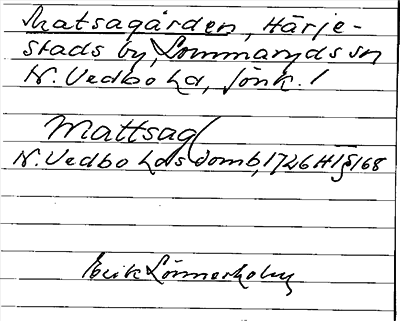 Matsagården, Härje-
stads by, Lommaryds sn
N. Vedbo hd, Jönk. l
Mattsag(
N. Vedbo hds domb, 1726 H T § 168
Erik Lönnerholm